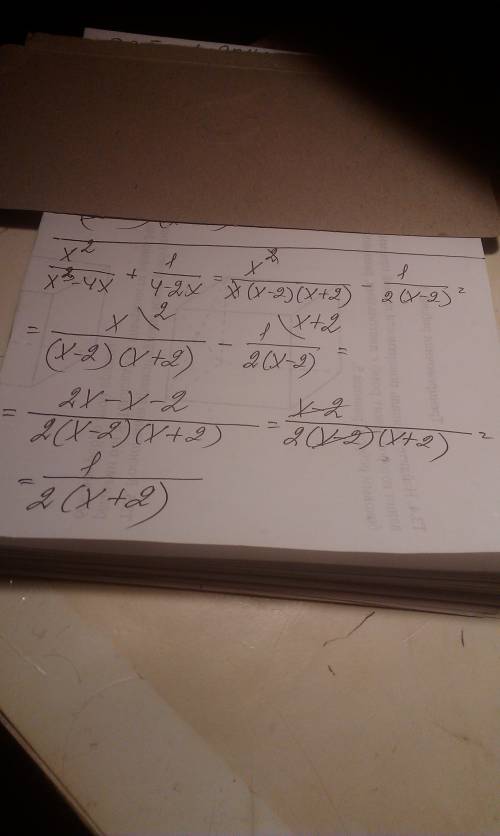 x²/(x³-4x) + 1/(4-2x) = x²/(x(x-2)(x+2)) - 1/(2(x-2)) =
= x\2/((x-2)(x+2)) - 1\x+2/(2(x-2)) =
= (2x-x-2)/(2(x-2)(x+2)) = (x-2)/(2(x-2)(x+2)) =
= 1/(2(x+2))